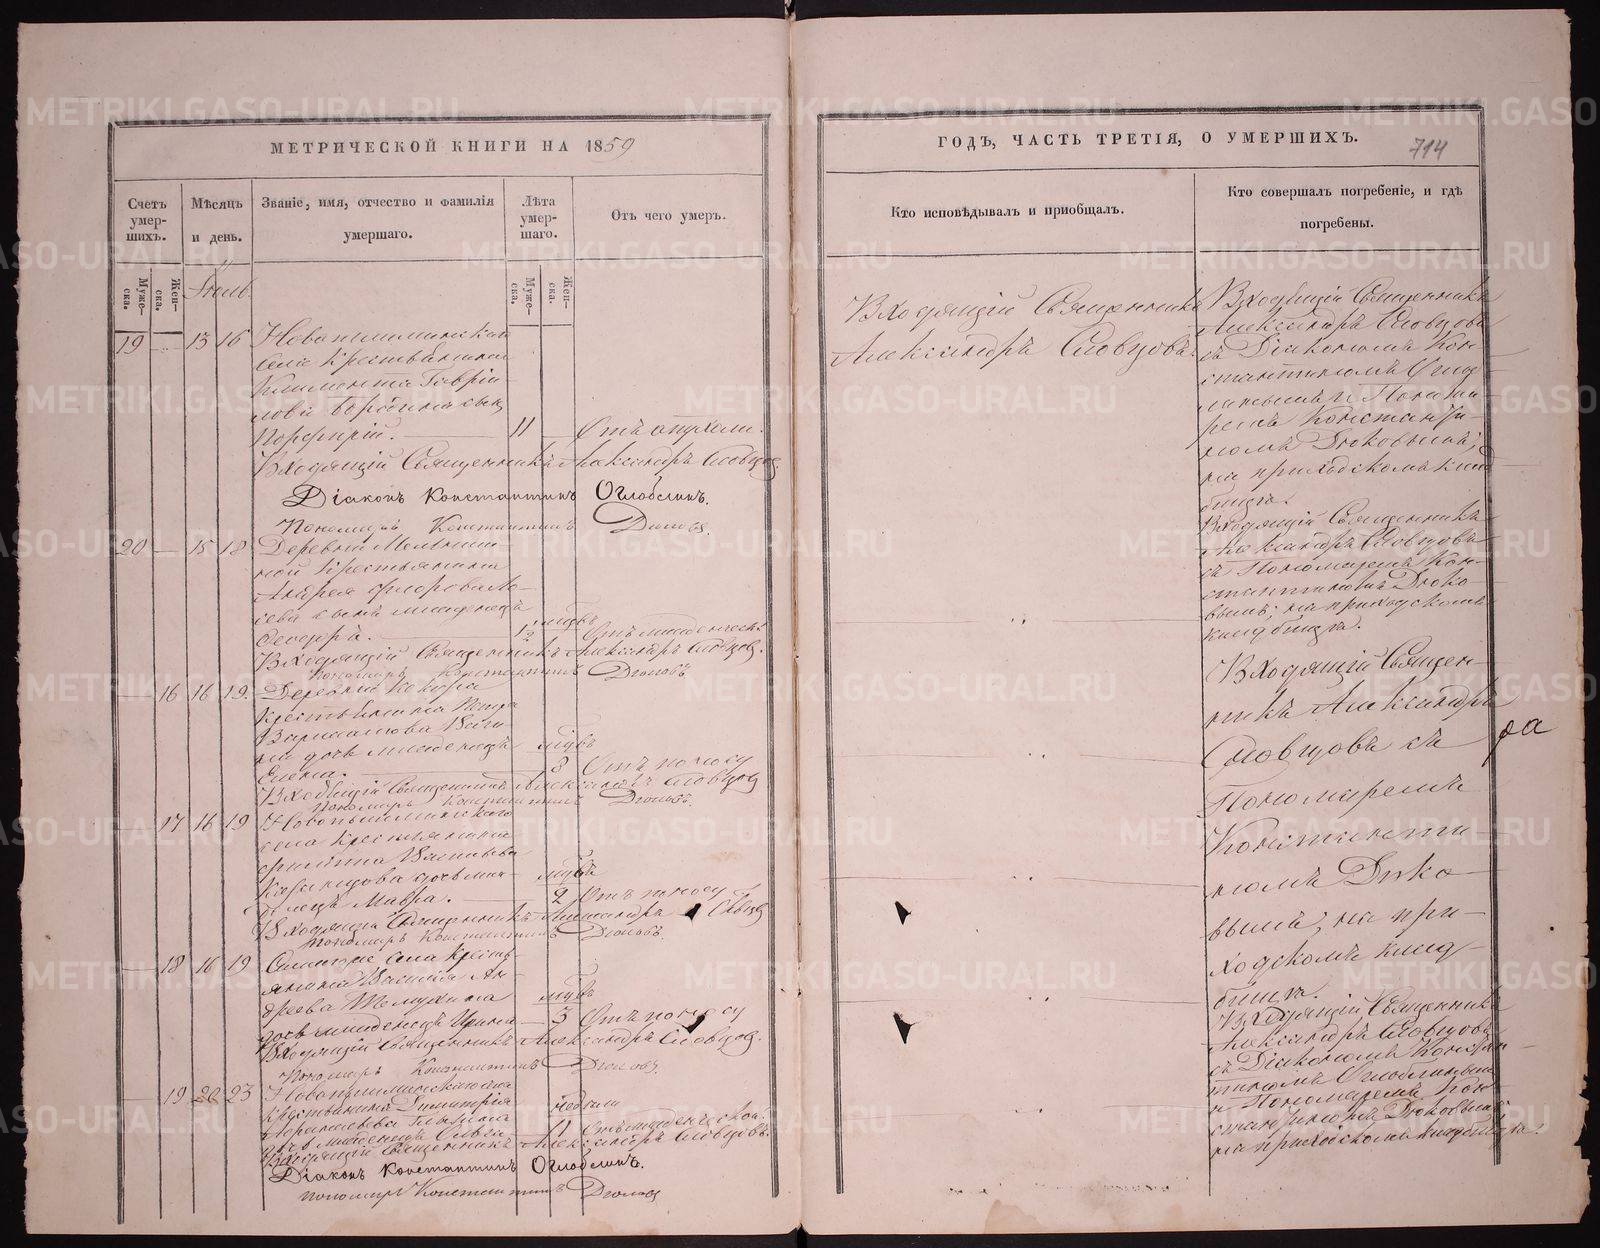 МЕТРИЧЕСКОЙ КНИГИ НА 1859
Счетъ умер-шихъ.
Мѣсяцъ и день.
Званіе, имя, отчество и фамилія умершаго.
Лѣта умер-шаго.
Отъ чего умеръ.
Муже-ска.
Жен-ска.
Муже-ска.
Жен-ска.
19 — 13 16 Новопышминскаго
села крестьянина
Климента Гаврі-
лова сынъ
Порфирій. — 11 — Отъ опухоли.
Входящій Священникъ Александръ Словцовъ.
Діаконъ Константинъ Оглоблинъ.
Пономарь Константинъ Дюковъ.
20 — 15 18 Деревни
крестьянина
Андрея Флорова
сева сынъ младенецъ
Феодоръ. — 1/2 Отъ младенческ:
Входящій Священникъ Александръ Словцовъ.
Пономарь Константинъ Дюковъ
— 16 16 19. Деревни
крестьянина Петра
Варлакова
на дочь младенецъ
Елена. — 3 Отъ поносу
Входящій Священникъ Александръ Словцовъ
Пономарь Константинъ Дюковъ.
— 17 16 19 Новопышминскаго
села крестьянина
Филиппа Васильева
дочь мла-
денецъ Мавра. — 2 Отъ поносу
Входящій Священникъ Александръ Словцовъ
Пономарь Константинъ Дюковъ.
— 18 16 19 села кресть-
янина Василія Ан-
дреева
дочь младенецъ Ирина — 3 Отъ поносу
Входящій Священникъ Александръ Словцовъ.
Пономарь Константинъ Дюковъ.
— 19 20 23 Новопышминскаго села
крестьянина Димитрія недели
дочь младенецъ 11 Отъ младенческой.
Входящій Священникъ Александръ Словцовъ.
Діаконъ Константинъ Оглоблинъ.
Пономарь Константинъ Дюковъ
ГОДЪ, ЧАСТЬ ТРЕТІЯ, О УМЕРШИХЪ.
714
Кто исповѣдывалъ и приобщалъ.
Кто совершалъ погребеніе, и гдѣ погребены.
Входящій Священникъ
Александръ Словцовъ.
Входящій Священникъ
Александръ Словцовъ
съ Діакономъ Кон-
стантиномъ Огло-
блинымъ и Понома-
ремъ Константи-
номъ Дюковымъ;
на приходскомъ клад-
бищѣ.
Входящій Священникъ
Александръ Словцовъ
съ Пономаремъ Кон-
стантиномъ Дюко-
вымъ; на приходскомъ
кладбищѣ.
Входящій Священ-
никъ Александръ
Словцовъ съ
Пономаремъ
Константи-
номъ Дюко-
вымъ; на при-
ходскомъ клад-
бищѣ.
Входящій Священникъ
Александръ Словцовъ
съ Діакономъ Констан-
тиномъ Оглоблинымъ
и Пономаремъ Кон-
стантиномъ Дюковымъ
на приходскомъ кладбищѣ.
ра
METRIKI.GASO-URAL.RU